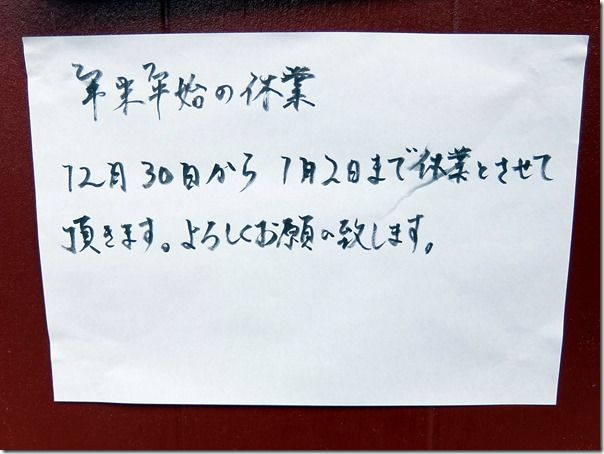 年末年始の休業
12月30日から1月2日まで休業とさせて
頂きます。よろしくお願い致します。